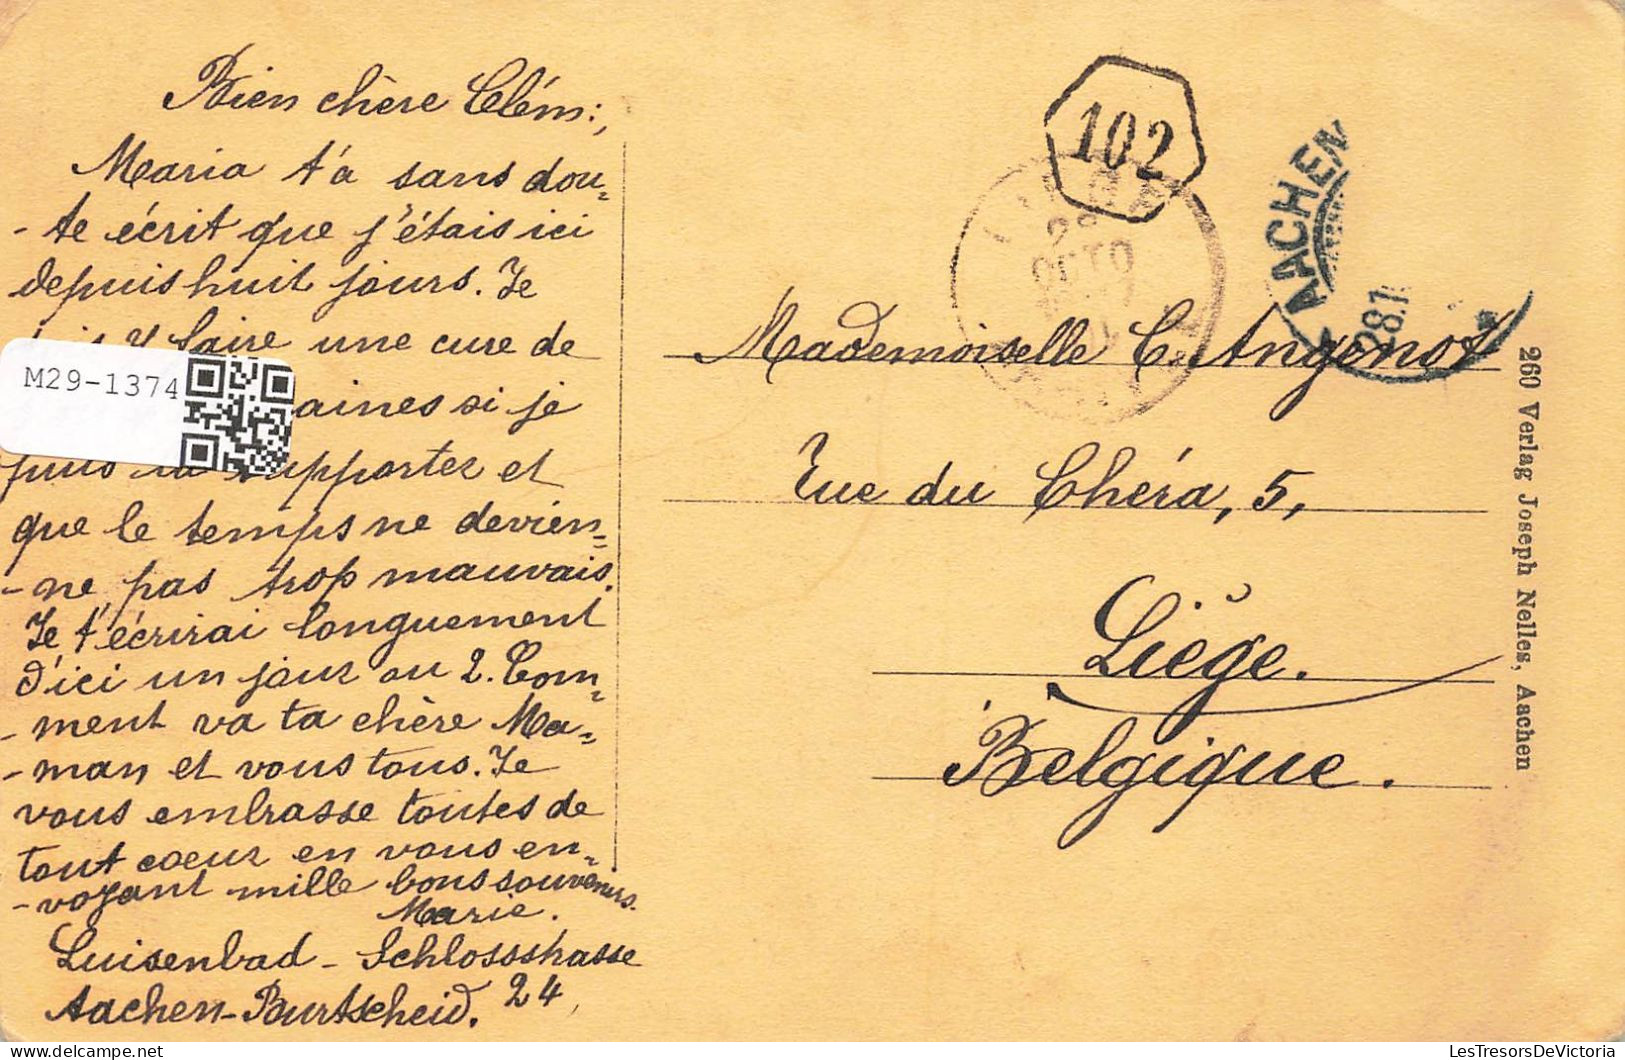 Bien chère Clém:,
Maria t'a sans dou-
-te écrit que j'étais ici
depuis huit jours. Je
y faire une cure de
M29-1374
aines si je
puis la supporter et
que le temps ne devien=
-ne pas trop mauvais.
Je t'écrirai longuement
d'ici un jour ou 2. Com=
-ment va ta chère Ma=
-man et vous tous. Je
vous embrasse toutes de
tout coeur en vous en=
-voyant mille bons souvenirs.
Marie.
Luisenbad - Schlossstrasse
Aachen-Burtscheid. 24
102
AACHEN
28.1
Mademoiselle C. Angenot
Rue du Chéra, 5,
Liége.
Belgique.
260 Verlag Joseph Nelles, Aachen
LesTresorsDeVictoria